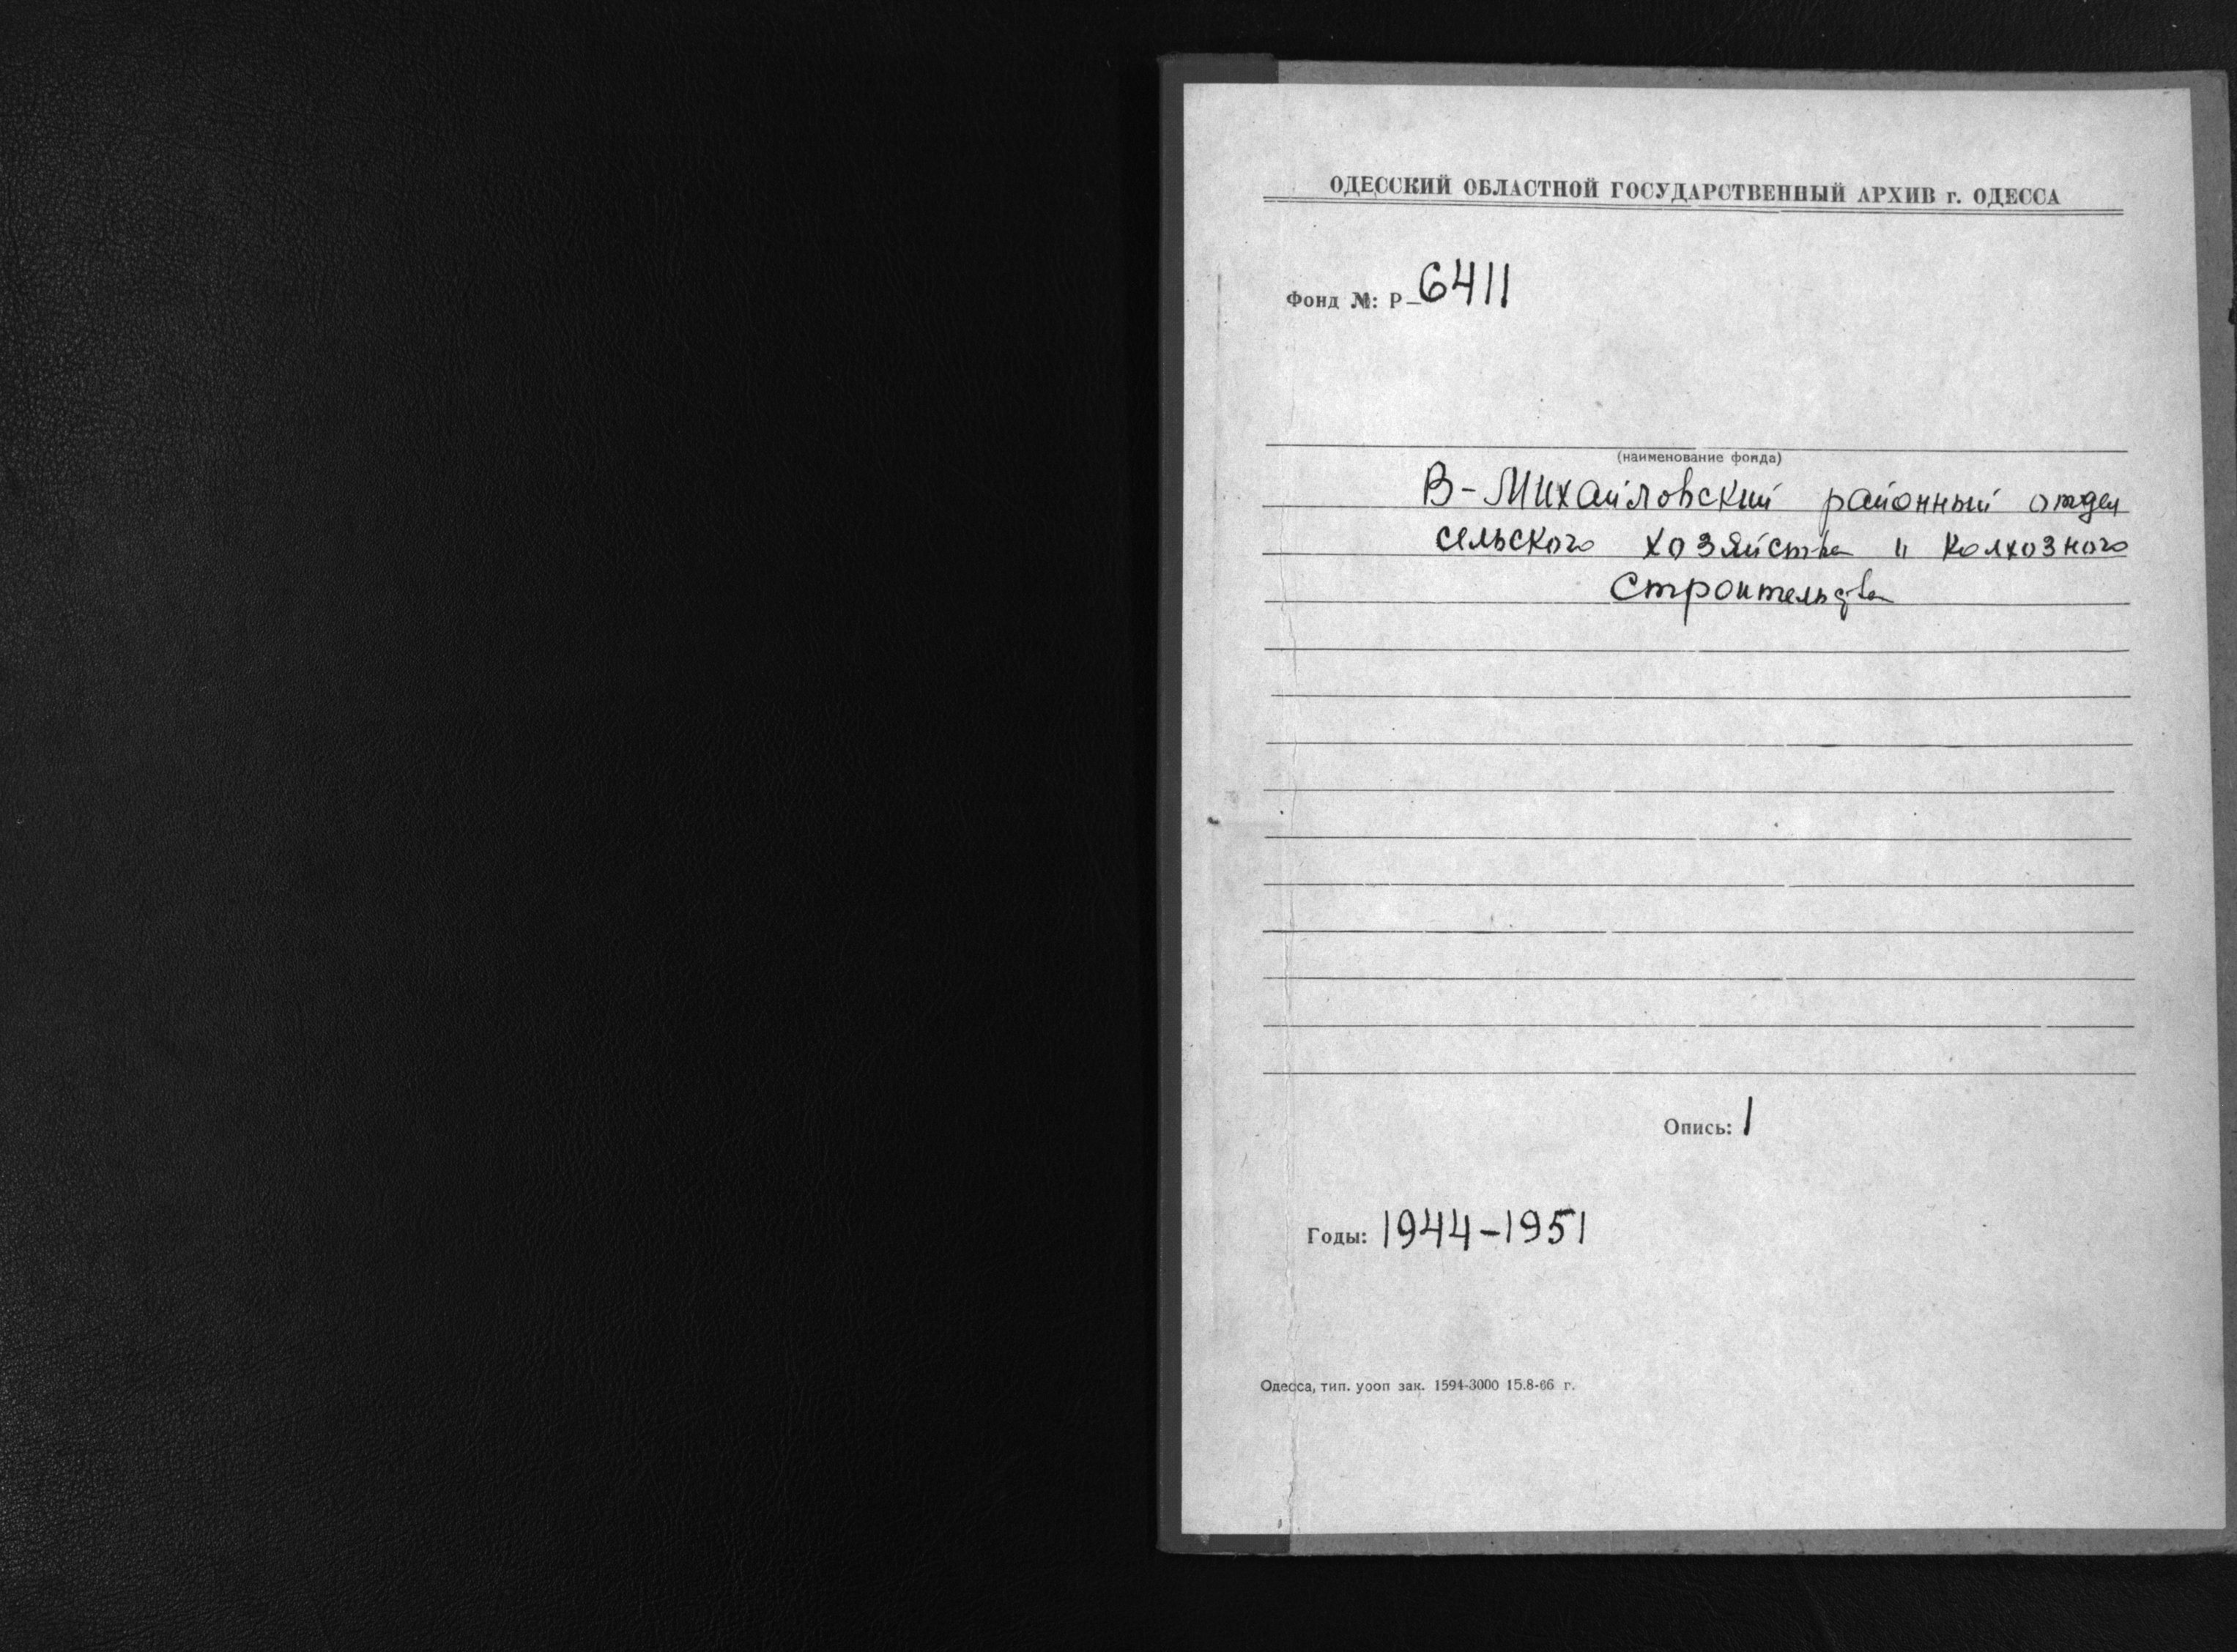 ОДЕССКИЙ ОБЛАСТНОЙ ГОСУДАРСТВЕННЫЙ АРХИВ г. ОДЕССА
Фонд №: Р-6411
(наименование фонда)
В-Михайловский районный отдел
сельского хозяйства и колхозного
строительства
Опись: 1
Годы: 1944-1951
Одесса, тип. уооп зак. 1594-3000 15.8-66 г.